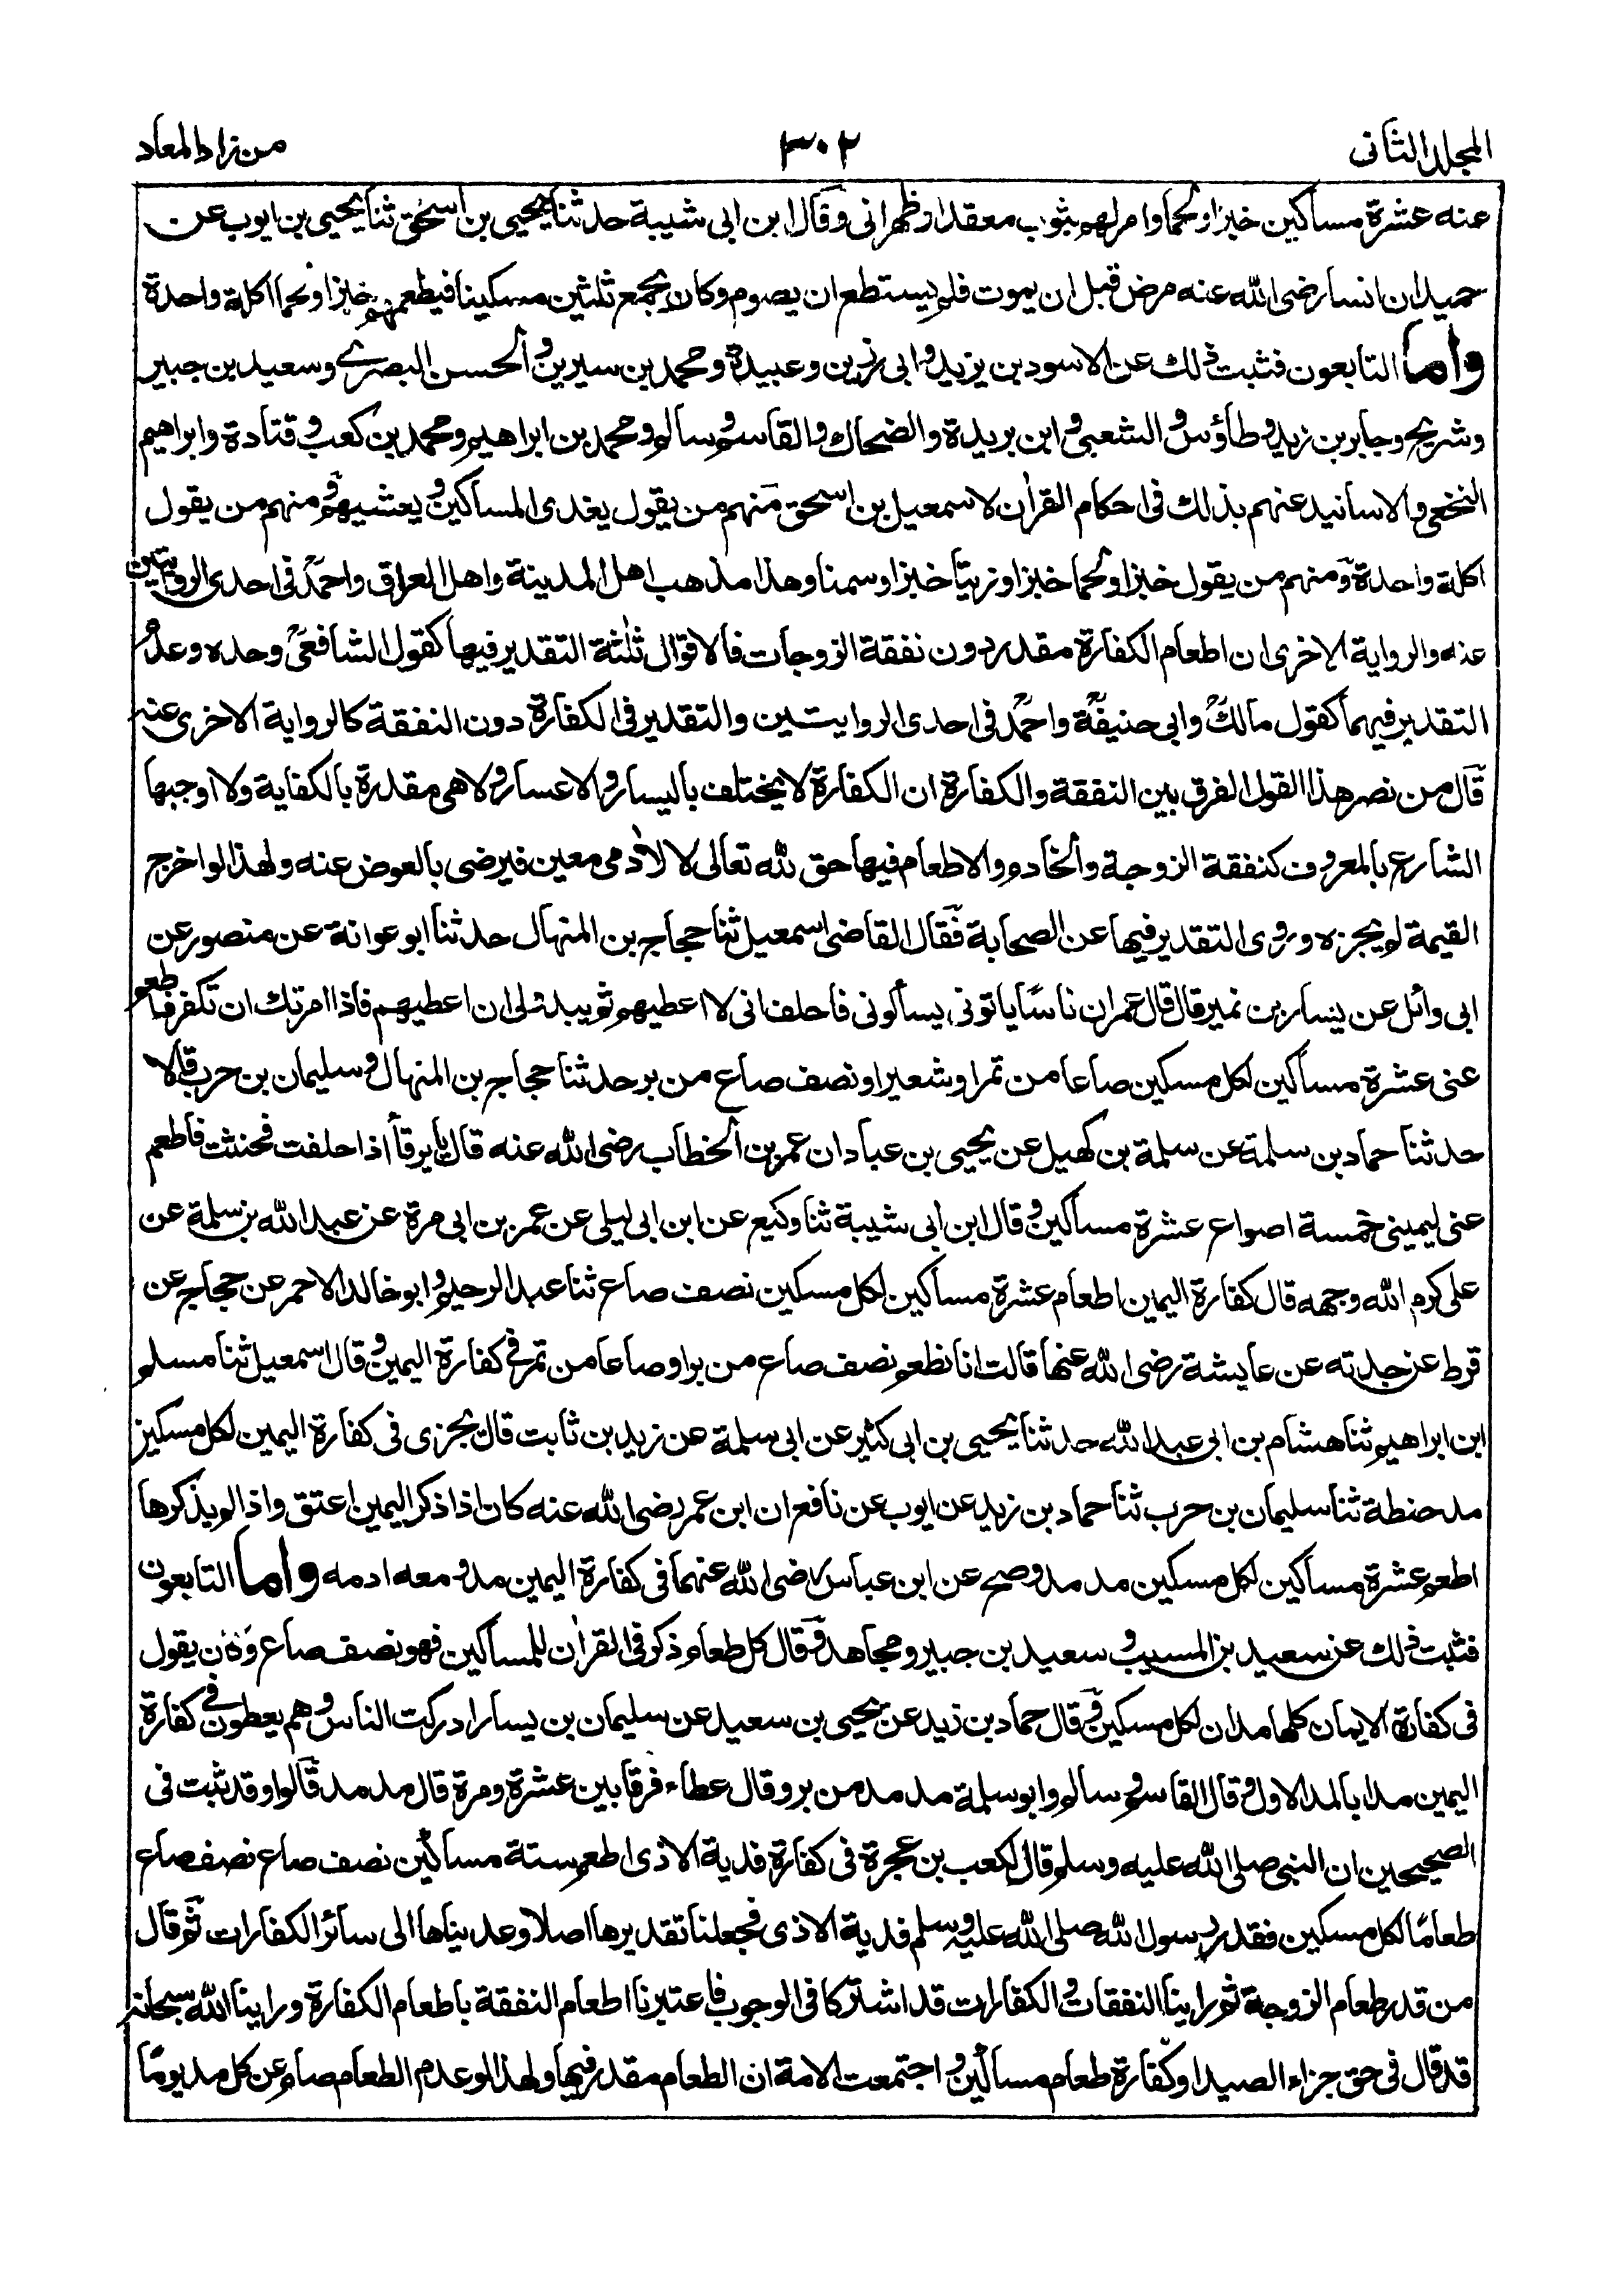 المجلد الثانى
٣٠٢
من زاد المعاد
عنه عشرة مساكين خبزا ولحما وامر لهم بثوب معقد او ظهرانى وقال ابن ابى شيبة حدثنا يحيى بن اسحق ثنا يحيى بن ايوب عن
حميد ان انسا رضى الله عنه مرض قبل ان يموت فلم يستطع ان يصوم وكان يجمع ثلثين مسكينا فيطعمهم خبزا ولحما اكلة واحدة
واما التابعون فثبت ذلك عن الاسود بن يزيد وابى رزين وعبيدة ومحمد بن سيرين والحسن البصرے وسعيد بن جبير
وشريح وجابر بن زيد وطاؤس والشعبى وابن بريدة والضحاك والقاسم وسالم ومحمد بن ابراهيم ومحمد بن كعب وقتادة وابراهيم
النخعى والاسانيد عنهم بذلك فى احكام القرأن لاسمعيل بن اسحق منهم من يقول يغدى المساكين ويعشيهم ومنهم من يقول
اكلة واحدة ومنهم من يقول خبزا ولحما خبزا وزيتا خبزا وسمنا وهذا مذهب اهل المدينة واهل العراق واحمد فى احدى الروايتين
عنه والرواية الاخرى ان اطعام الكفارة مقدر دون نفقة الزوجات فالاقوال ثلثة التقدير فيهما كقول الشافعى وحده وعدم
التقدير فيهما كقول مالك وابى حنيفة واحمد فى احدى الروايتين والتقدير فى الكفارة دون النفقة كالرواية الاخرى عنه
قال من نصر هذا القول الفرق بين النفقة والكفارة ان الكفارة لا يختلف باليسار والاعسار ولا هى مقدرة بالكفاية ولا اوجبها
الشارع بالمعروف كنفقة الزوجة والخادم والاطعام فيها حق لله تعالى لا لأدمى معين فيرضى بالعوض عنه ولهذا لو اخرج
القيمة لم يجزه وروى التقدير فيها عن الصحابة فقال القاضى اسمعيل ثنا حجاج بن المنهال حدثنا ابو عوانة عن منصور عن
ابى وائل عن يسار بن نمير قال قال عمر ان ناسًا ياتونى يسألونى فاحلف انى لا اعطيهم ثم يبد ولى ان اعطيهم فاذا امرتك ان تكفر فاطعم
عنى عشرة مساكين لكل مسكين صاعا من تمر او شعير او نصف صاع من بر حدثنا حجاج بن المنهال وسليمان بن حرب قالا
حدثنا حماد بن سلمة عن سلمة بن كهيل عن يحيى بن عباد ان عمر بن الخطاب رضى الله عنه قال يا يرفأ اذا حلفت فحنثت فاطعم
عنى ليمينى خمسة اصواع عشرة مساكين وقال ابن ابى شيبة ثنا وكيع عن ابن ابى ليلى عن عمر بن ابى مرة عن عبد الله بن سلمة عن
على كرم الله وجهه قال كفارة اليمين اطعام عشرة مساكين لكل مسكين نصف صاع ثنا عبد الرحيم وابو خالد الاحمر عن حجاج عن
قرط عن جدته عن عايشة رضى الله عنها قالت انا نطعم نصف صاع من بر او صاعا من تمر فى كفارة اليمين وقال اسمعيل ثنا مسلم
ابن ابراهيم ثنا هشام بن ابى عبد الله حدثنا يحيى بن ابى كثير عن ابى سلمة عن زيد بن ثابت قال يجزى فى كفارة اليمين لكل مسكين
مد حنطة ثنا سليمان بن حرب ثنا حماد بن زيد عن ايوب عن نافع ان ابن عمر رضى الله عنه كان اذا ذكر اليمين اعتق واذا لم يذكرها
اطعم عشرة مساكين لكل مسكين مد مد وصح عن ابن عباس رضى الله عنهما فى كفارة اليمين مد ومعه ادمه واما التابعون
فثبت ذلك عن سعيد بن المسيب وسعيد بن جبير ومجاهد وقال كل طعام ذكر فى القرأن للمساكين فهو نصف صاع وكان يقول
فى كفارة الايمان كلها مدان لكل مسكين وقال حماد بن زيد عن يحيى بن سعيد عن سليمان بن يسار ادركت الناس وهم يعطون فى كفارة
اليمين مدا بالمد الاول وقال القاسم وسالم وابو سلمة مد مد من بر وقال عطاء فرقا بين عشرة ومرة قال مد مد قالوا وقد ثبت فى
الصحيحين ان النبى صلى الله عليه وسلم قال لكعب بن عجرة فى كفارة فدية الاذى اطعم ستة مساكين نصف صاع نصف صاع
طعامًا لكل مسكين فقدر رسول الله صلى الله عليه وسلم فدية الاذى فجعلنا تقديرها اصلا وعديناها الى سائر الكفارات ثم قال
من قدر طعام الزوجة ثم راينا النفقات والكفارات قد اشتركا فى الوجوب فاعتبرنا اطعام النفقة باطعام الكفارة وراينا الله سبحانه
قد قال فى حق جزاء الصيد او كفارة طعام مساكين واجتمعت الامة ان الطعام مقدر فيها ولهذا لو عدم الطعام صام عن كل مد يومًا